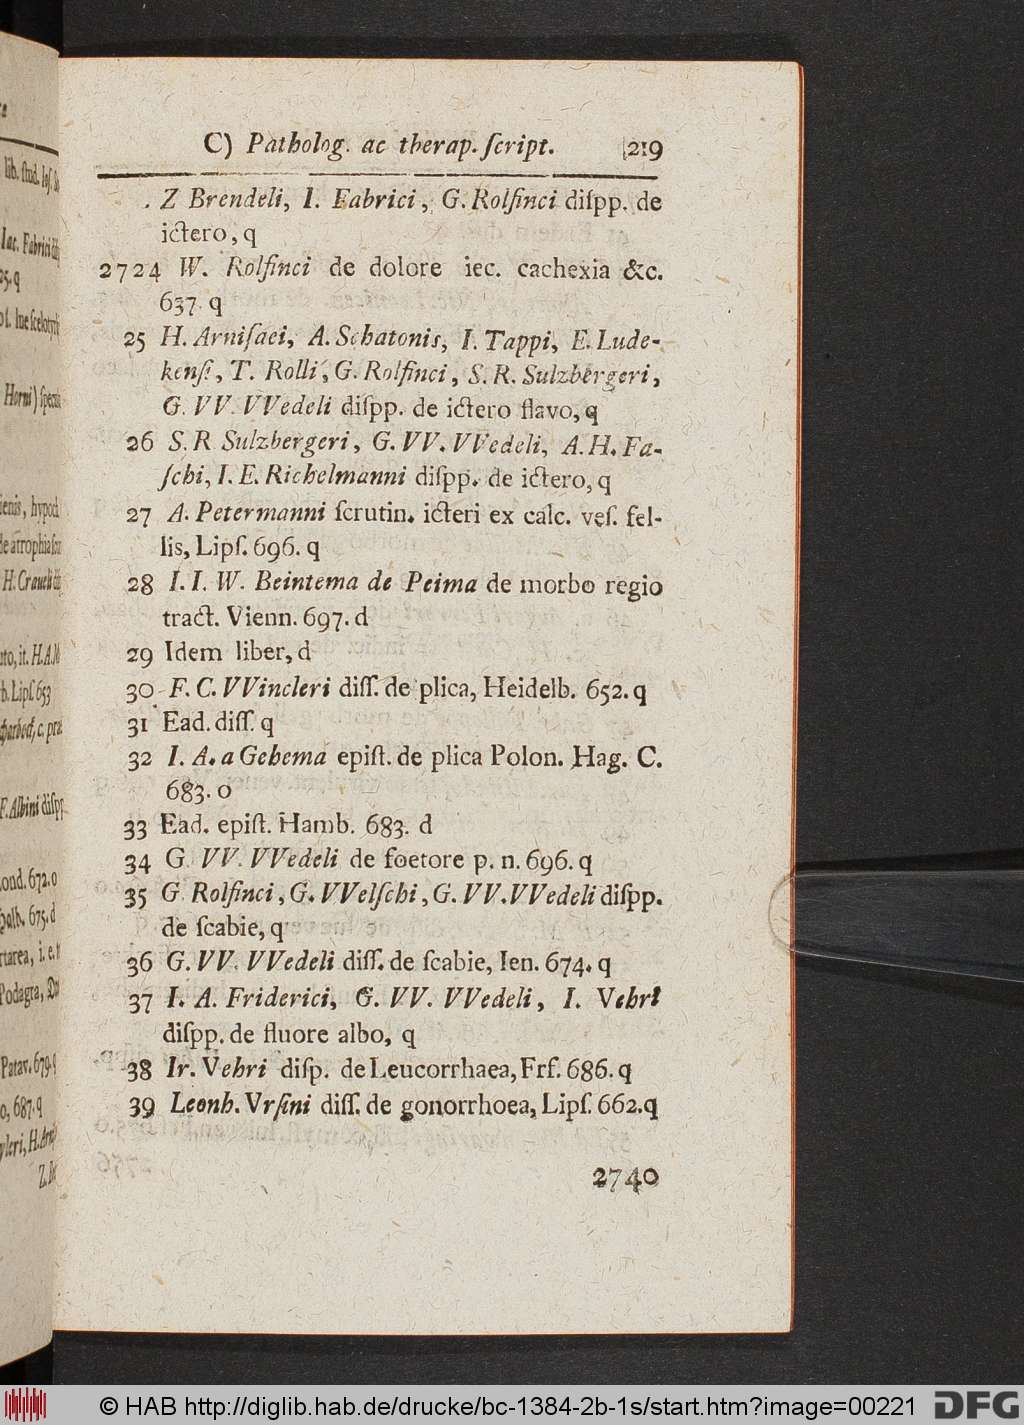 C) Patholog. ac therap. ſcript. 219
Z Brendeli, I. Fabrici, G. Rolfinci diſpp. de
ictero, q
2724 W. Rolfinci de dolore iec. cachexia &c.
637. q
25 H. Arniſaei, A. Schatonis, I. Tappi, E. Lude-
kenſi, T. Rolli, G. Rolfinci, S. R. Sulzbergeri,
G. VV. VVedeli diſpp. de ictero flavo, q
26 S. R Sulzbergeri, G. VV. VVedeli, A. H. Fa-
ſchi, I. E. Richelmanni diſpp. de ictero, q
27 A. Petermanni ſcrutin. icteri ex calc. veſ. fel-
lis, Lipſ. 696. q
28 I. I. W. Beintema de Peima de morbo regio
tract. Vienn. 697. d
29 Idem liber, d
30 F. C. VVincleri diſſ. de plica, Heidelb. 652. q
31 Ead. diſſ. q
32 I. A. a Gehema epiſt. de plica Polon. Hag. C.
683. o
33 Ead. epiſt. Hamb. 683. d
34 G. VV. VVedeli de foetore p. n. 696. q
35 G. Rolfinci, G. VVelſchi, G. VV. VVedeli diſpp.
de ſcabie, q
36 G. VV. VVedeli diſſ. de ſcabie, Ien. 674. q
37 I. A. Friderici, G. VV. VVedeli, I. Vehri
diſpp. de fluore albo, q
38 Ir. Vehri diſp. de Leucorrhaea, Frf. 686. q
39 Leonh. Vrſini diſſ. de gonorrhoea, Lipſ. 662. q
2740
© HAB http://diglib.hab.de/drucke/bc-1384-2b-1s/start.htm?image=00221
DFG